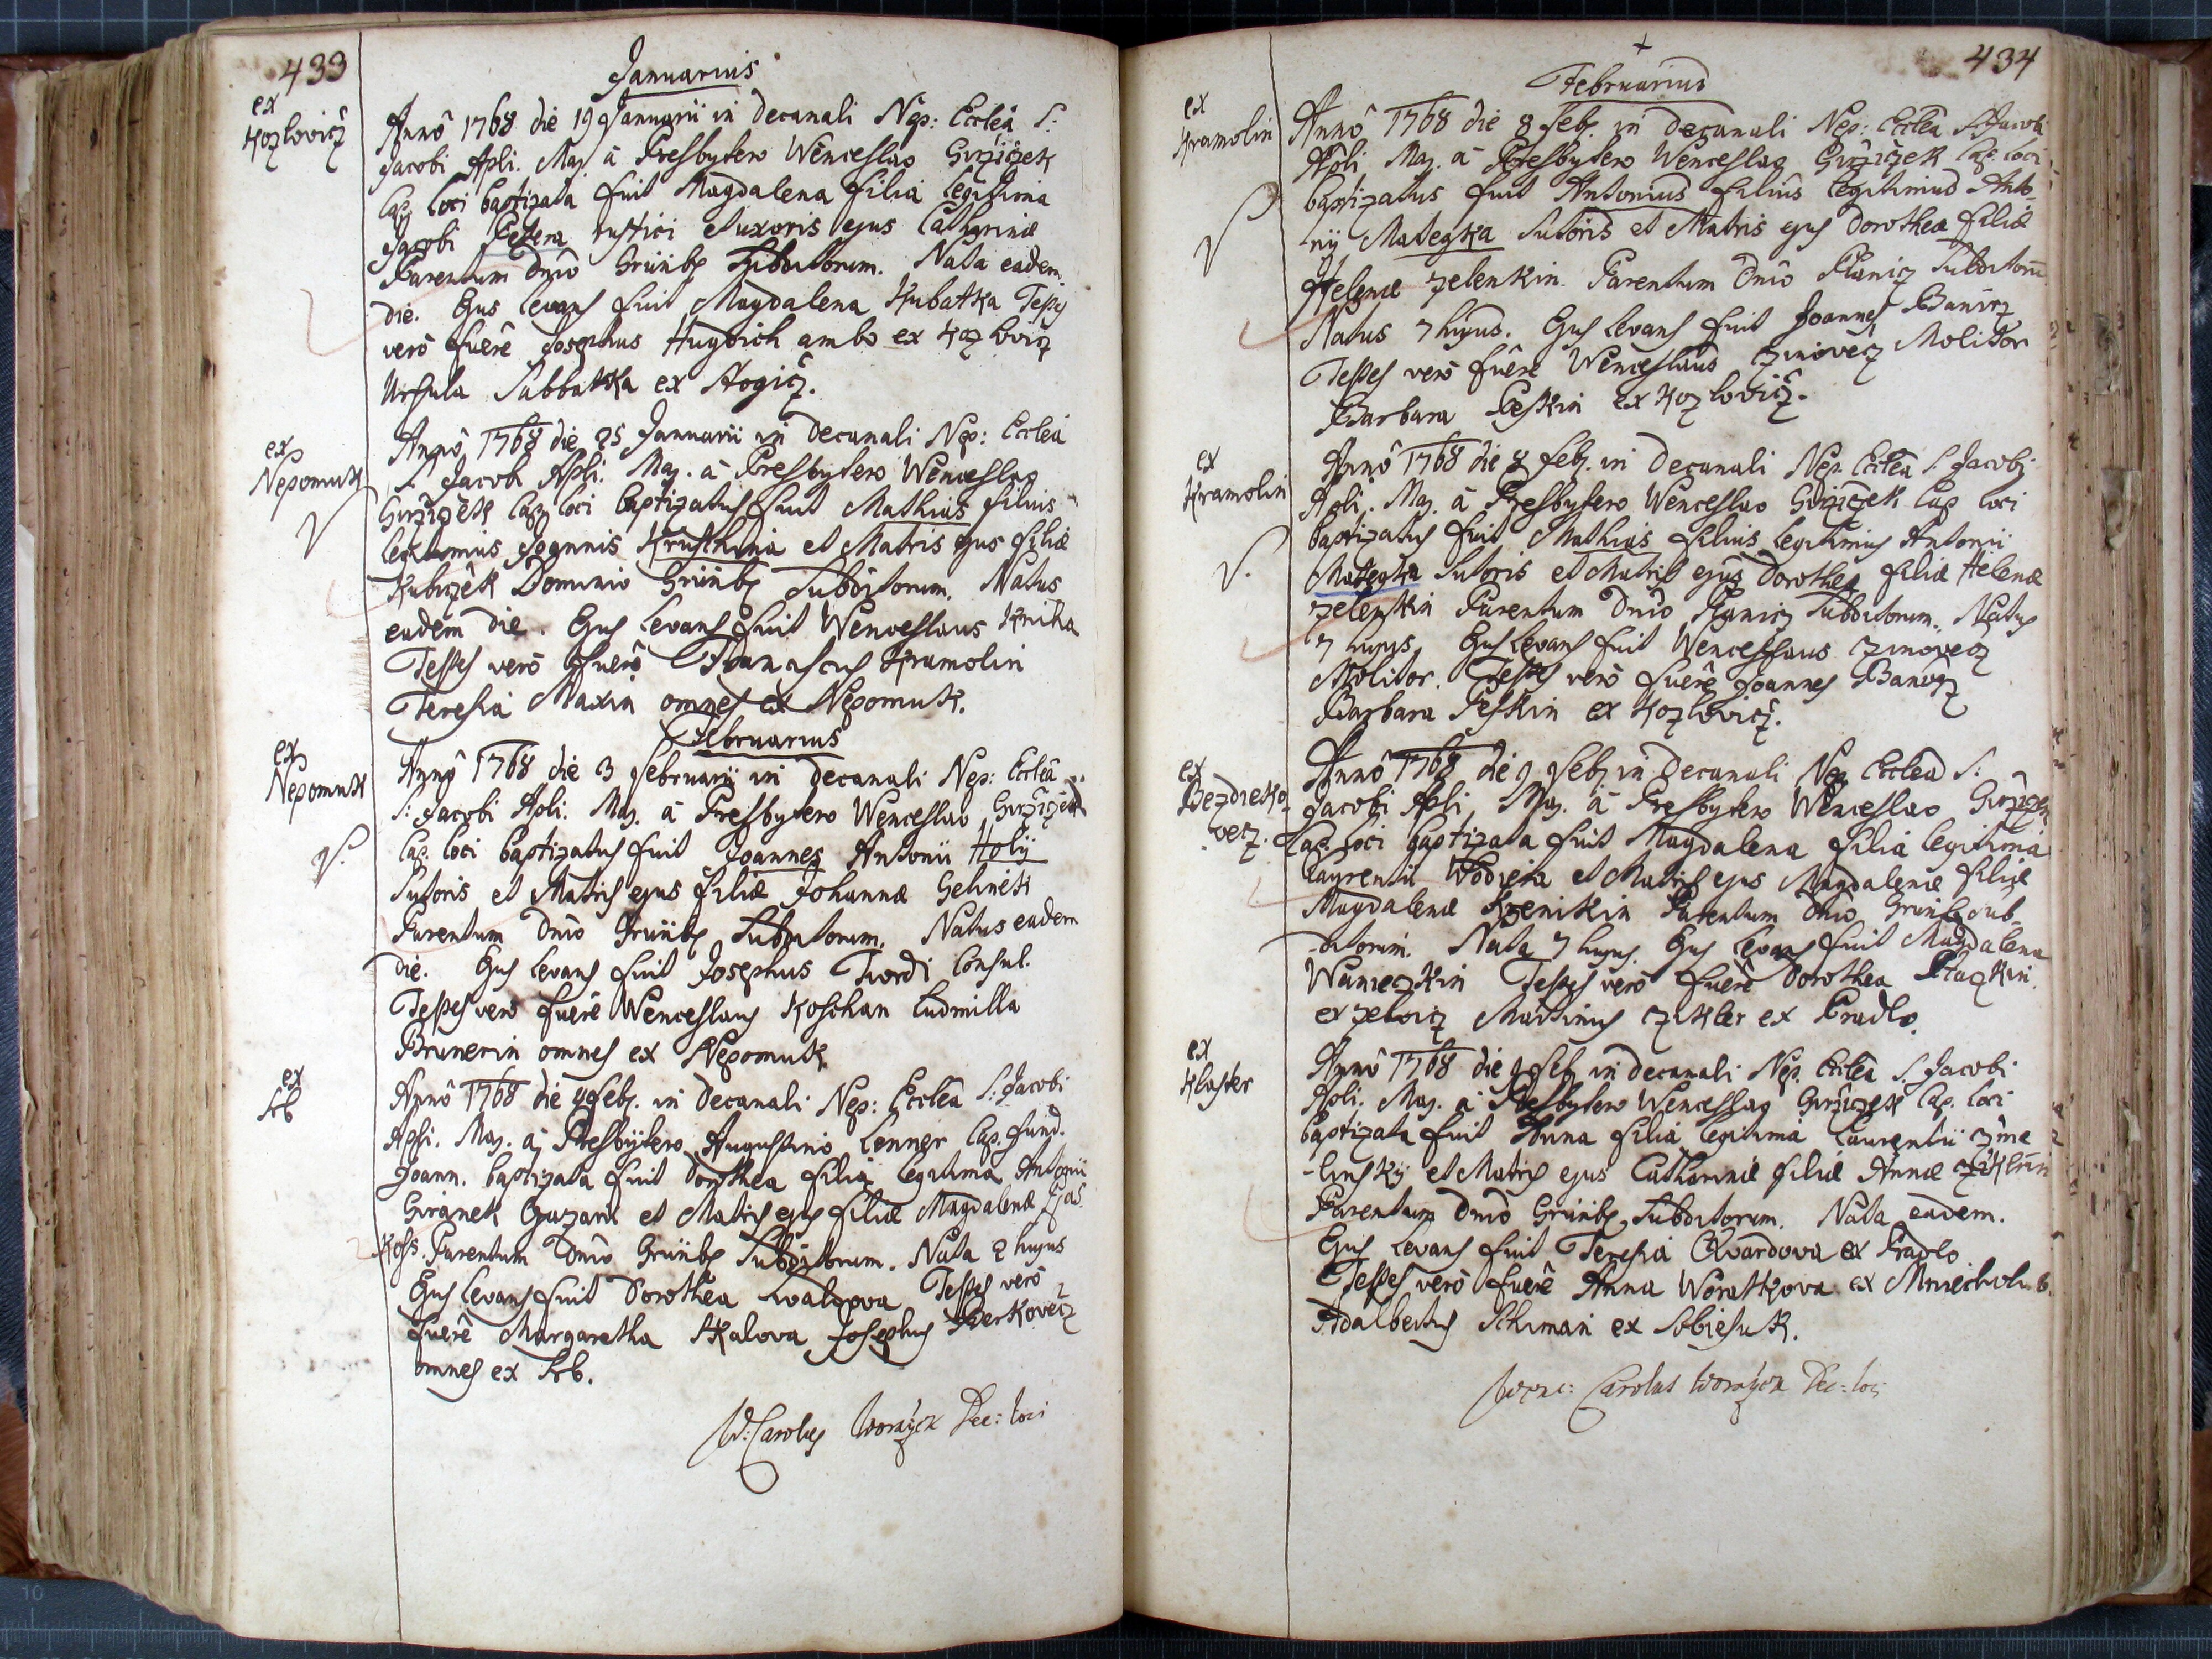 433
Januarius
ex
Kozlovicz
Annô 1768 die 19 Januarii in Decanali Nep: Ecclêa S:
Jacobi Apli. Maj. â Presbytero Wenceslao Girziczek
Cap. loci baptizata fuit Magdalena filia legitima
Jacobi Petera rustici et uxoris ejus Catharinæ
Parentum Dnio Grünb. Subditorum. Nata eadem
die. Ejus levans fuit Magdalena Kubatka Testes
verò fuêre Josephus Hugdich ambo ex Kozlovicz
Ursula Subbatka ex Nogicz.
ex
Nepomuk
Annô 1768 die 25 Januarii in Decanali Nep: Ecclêa
S. Jacob Apli. Maj. â Presbytero Wenceslao
Girziczek Cap. loci baptizatus fuit Mathias filius
legitimus Joannis Krusthina et Matris ejus filiæ
Kubizek Dominio Grünb. Subditorum. Natus
eadem die. Ejus levans fuit Wenceslaus Kniha
Testes verò fuêre Franciscus Kramolin
Teresia Maxia omnes ex Nepomuk.
Februarius
ex
Nepomuk
Annô 1768 die 3 Februarij in Decanali Nep: Ecclêa
S: Jacobi Apli. Maj. â Presbytero Wenceslao Girziczek
Cap. loci baptizatus fuit Joannes Antonii Holij
Sutoris et Matris ejus filiæ Johannæ Gelinek
Parentum Dnio Grünb. Subditorum. Natus eadem
die. Ejus levans fuit Josephus Twrdi Consul.
Testes verò fuêre Wenceslaus Koschan Ludmilla
Brunerin omnes ex Nepomuk
ex
Srb
Annô 1768 die 4 Feb. in Decanali Nep: Ecclêa S: Jacobi
Apli. Maj. â Presbÿtero Augustino Lenner Cap. fund.
Joann. baptizata fuit Dorothea filia legitima Antonii
Giranek et Matris ejus filiæ Magdalenæ
Parentum Dnio Grünb. Subditorum. Nata 2 hujus
Ejus levans fuit Dorothea Testes verò
fuêre Margaretha Skalova Josephus Berkovecz
omnes ex Srb.
W: Carolus Woraczek Dec: loci
434
Februarius
ex
Kramolin
Annô 1768 die 8 Feb. in Decanali Nep: Ecclêa S. Jacobi
Apli Maj. â Presbytero Wenceslao Girziczek Cap. loci
baptizatus fuit Antonius filius legitimus Anto-
nij Mategka Sutoris et Matris ejus Dorotheæ filiæ
Helenæ Zelenkin. Parentum Dnio Planicz Subditorum
Natus 7 hujus. Ejus levans fuit Joannes Banocz
Testes verò fuêre Wenceslaus Czinovecz Molitor
Barbara Peskin ex Kozlovicz.
ex
Kramolin
Annô 1768 die 8 Feb. in Decanali Nep. Ecclêa S. Jacobi
Apli. Maj. â Presbytero Wenceslao Girziczek Cap. loci
baptizatus fuit Mathias filius legitimus Antonii
Mategka Sutoris et Matris ejus Dorotheæ filiæ Helenæ
Zelenkin Parentum Dnio Planicz Subditorum. Natus
7 hujus. Ejus levans fuit Wenceslaus Czinovecz
Molitor. Testes verò fuêre Joannes Banocz
Barbara Peskin ex Kozlovicz.
ex
Bezdieko-
vecz.
Annô 1768 die 9 Feb. in Decanali Nep. Ecclêa S:
Jacobi Apli. Maj. â Presbytero Wenceslao Girziczek
Cap. loci baptizata fuit Magdalena filia legitima
Laurentii Wodiera et Matris ejus Magdalenæ filiæ
Magdalenæ Parentum Dnio Grünb. Sub-
ditorum. Nata 7 hujus. Ejus levans fuit Magdalena
Wanieczkin Testes verò fuêre Dorothea
ex Martinus Czikler ex Pradlo.
ex
Kloster
Annô 1768 die 9 Feb. in Decanali Nep. Ecclêa S. Jacobi
Apli. Maj. â Presbytero Wenceslao Girziczek Cap. loci
baptizata fuit Anna filia legitima Laurentii Zme-
linsky et Matris ejus Catharinæ filiæ Annæ
Parentum Dnio Grünb. Subditorum. Nata eadem.
Ejus levans fuit Teresia Kwardova ex Pradlo
Testes verò fuêre Anna Woratkova ex Mniecholub.
Adalbertus Schiman ex Sobiesuk.
Wenc: Carolus Woraczek Dec: loci